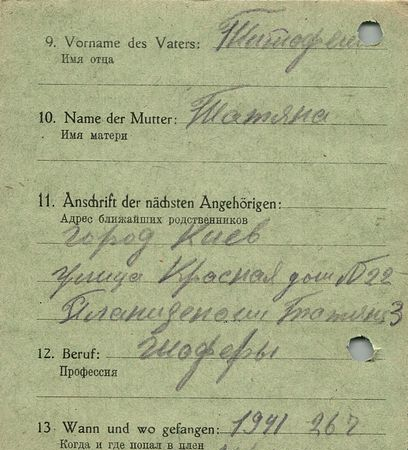 9. Vorname des Vaters:
Имя отца
10. Name der Mutter: Татяна
Имя матери
11. Anschrift der nächsten Angehörigen:
Адрес ближайших родственников
город Киев
улица Красная дом №22
Татяна З
12. Beruf: шоферы
Профессия
13 Wann und wo gefangen: 1941 26
Когда и где попал в плен